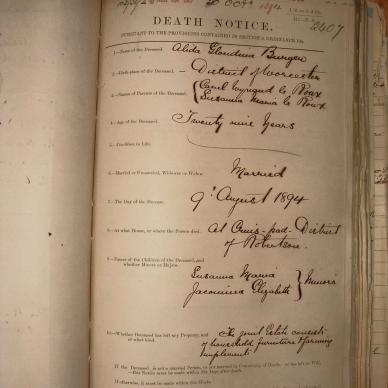 2407
DEATH NOTICE,
PURSUANT TO THE PROVISIONS CONTAINED IN
1.—Name of the Deceased. — Alida Glaudina Burger
2.—Birth-place of the Deceased. — District of Worcester
3.—Names of Parents of the Deceased. le Roux
Susanna Maria le Roux
4.—Age of the Deceased. — Twenty nine Years
5.—Condition in Life.
6.—Married or Unmarried, Widower or Widow. Married
7.—The Day of the Decease. 9th August 1894
8.—At what House, or where the Person died. At District
of Robertson
9.—Names of the Children of the Deceased, and
whether Minors or Majors.
Susanna Maria
Jacomina Elizabeth Minors
10.—Whether Deceased has left any Property, and
of what kind. The joint Estate consists
of household furniture & farming
implements
If the Deceased is not a married Person, or not married in Community of Goods
this Notice must be made within Six Days after death.
If otherwise, it must be made within Six Weeks.